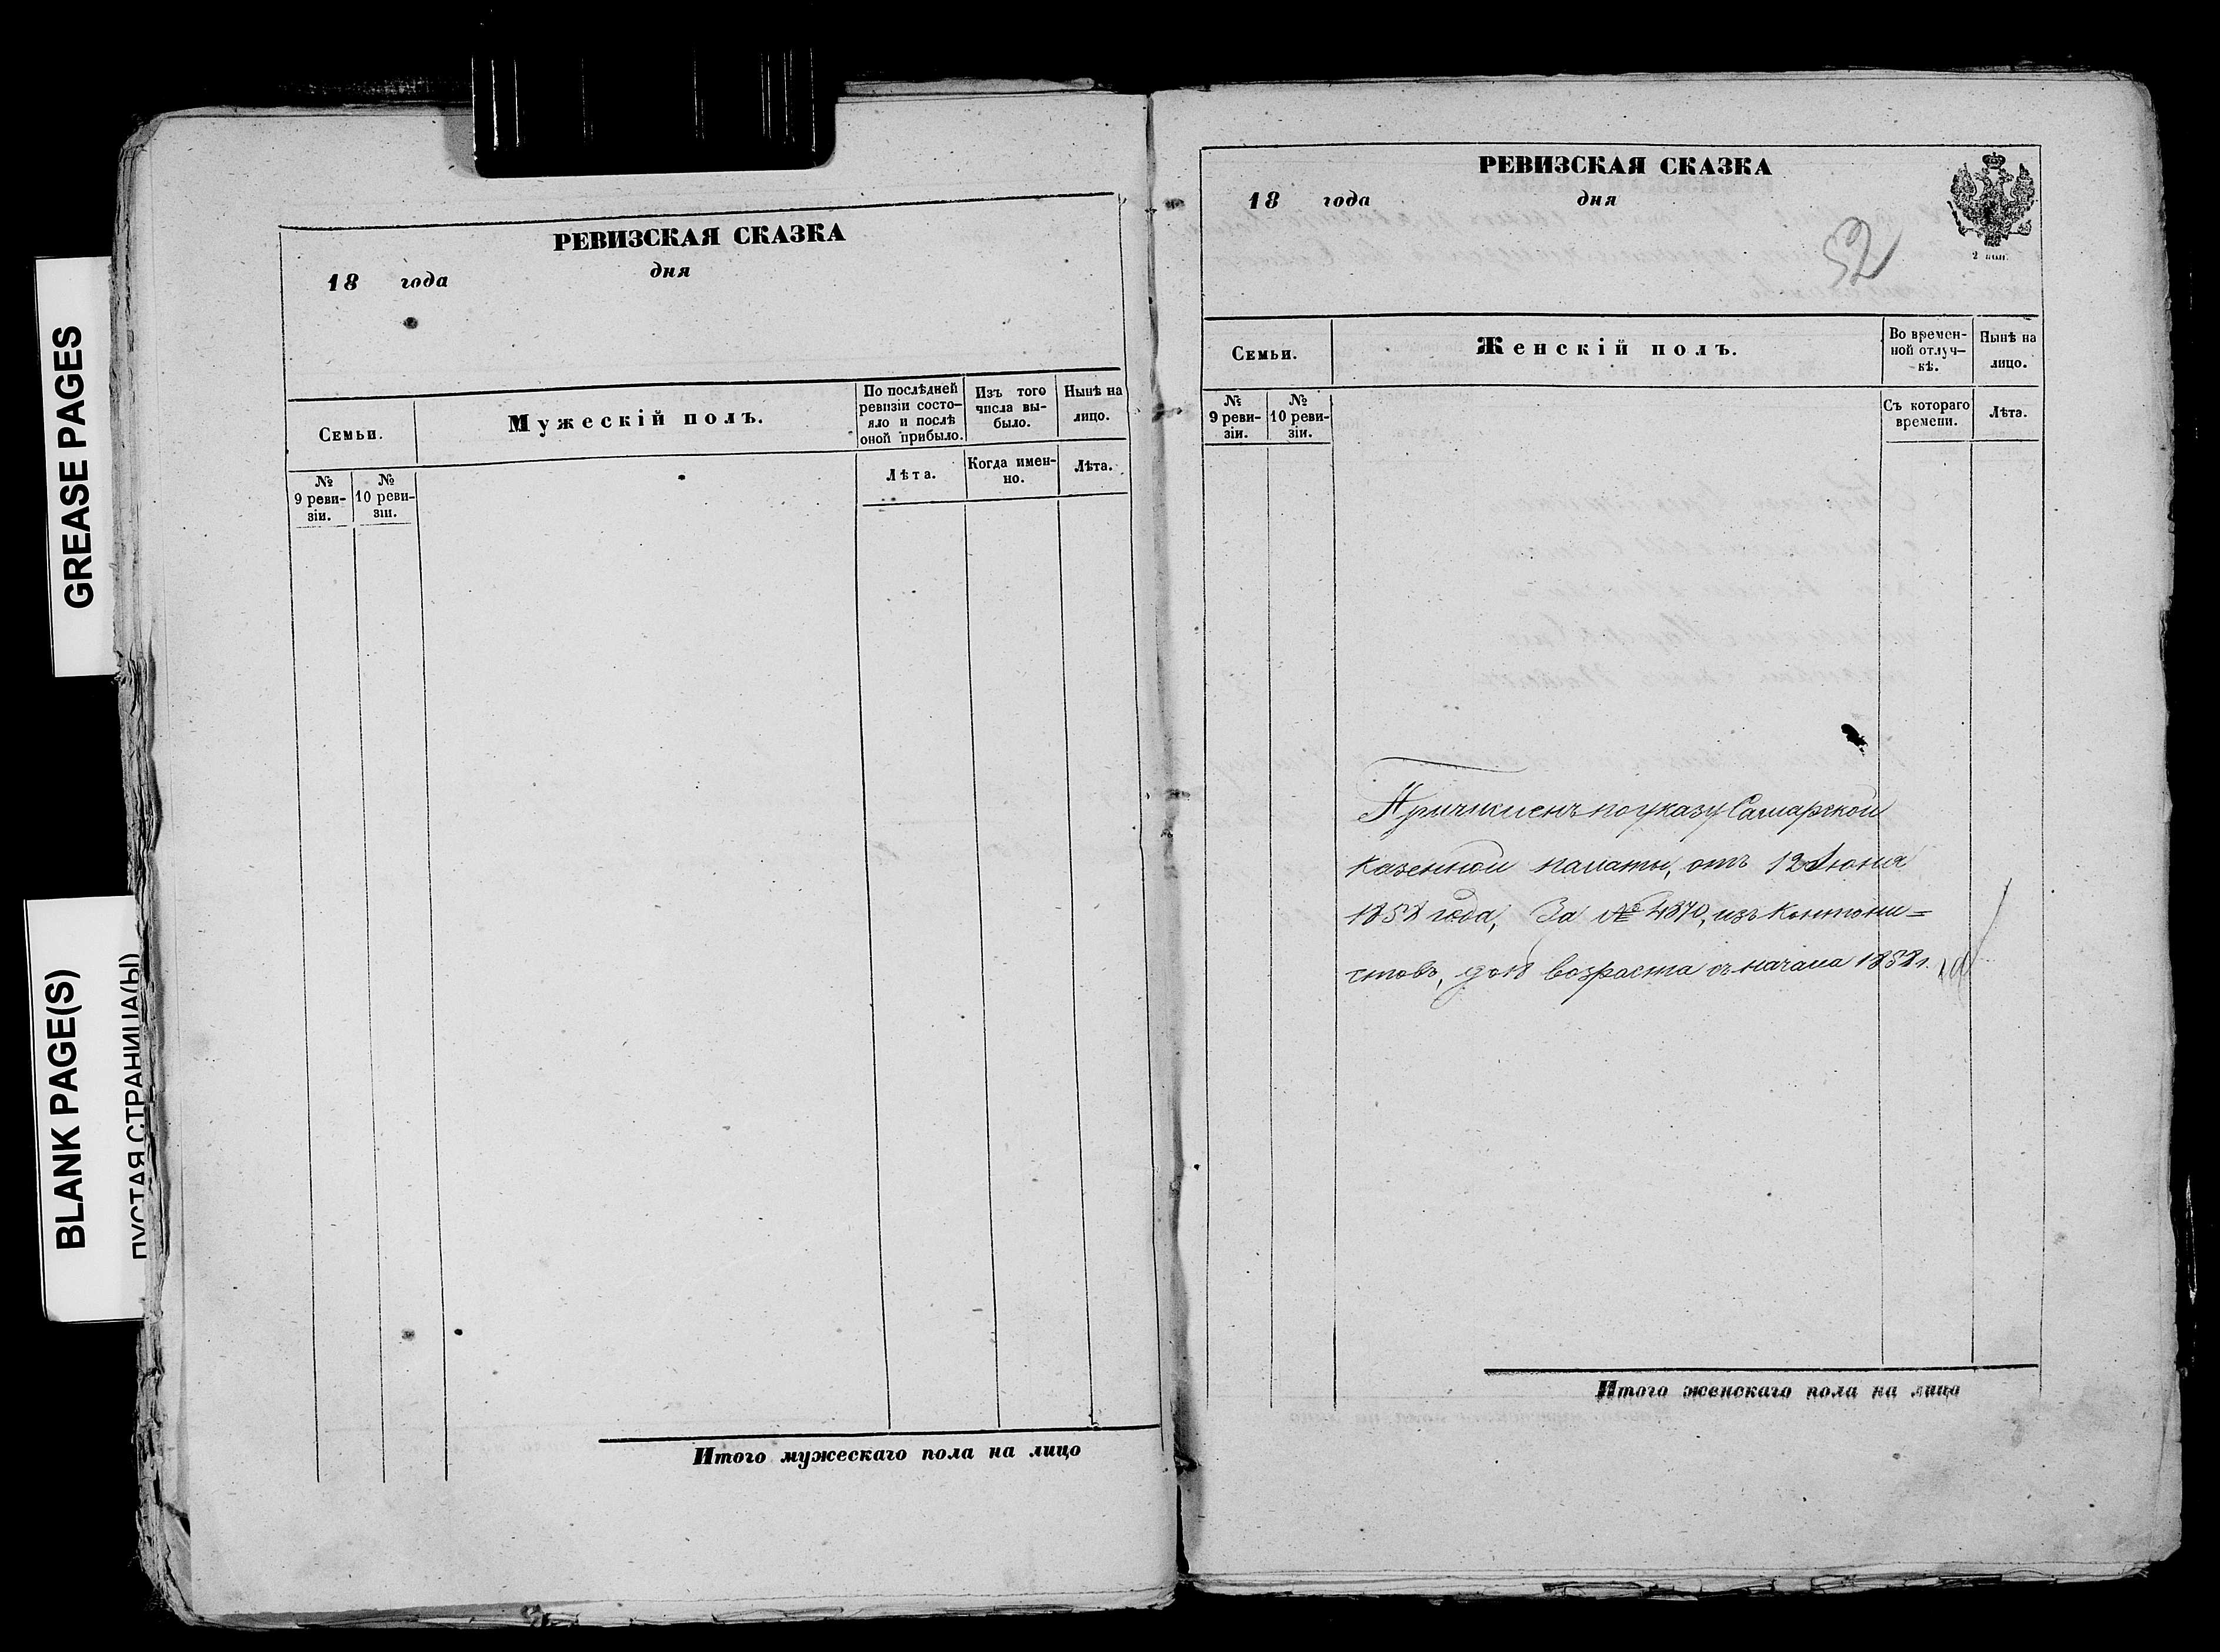 GREASE PAGES
BLANK PAGE(S)
ПУСТАЯ СТРАНИЦА(Ы)
РЕВИЗСКАЯ СКАЗКА
18 года дня
Семьи.
Мужескій полъ.
По послѣдней
ревизіи состо-
яло и послѣ
оной прибыло.
Изъ того
числа вы-
было.
Нынѣ на
лицо.
№
9 реви-
зіи.
№
10 реви-
зіи.
Лѣта.
Когда имен-
но.
Лѣта.
Итого мужескаго пола на лицо
РЕВИЗСКАЯ СКАЗКА
18 года дня
52
2 коп.
Семьи.
Женскій полъ.
Во времен-
ной отлуч-
кѣ.
Нынѣ на
лицо.
№
9 реви-
зіи.
№
10 реви-
зіи.
Съ котораго
времени.
Лѣта.
Причисленъ по указу Самарской
казенной палаты, отъ 12 Іюня
1858 года, За № 4870, изъ Кантони=
стовъ, до возраста съ начала 1858 г.
Итого женскаго пола на лицо